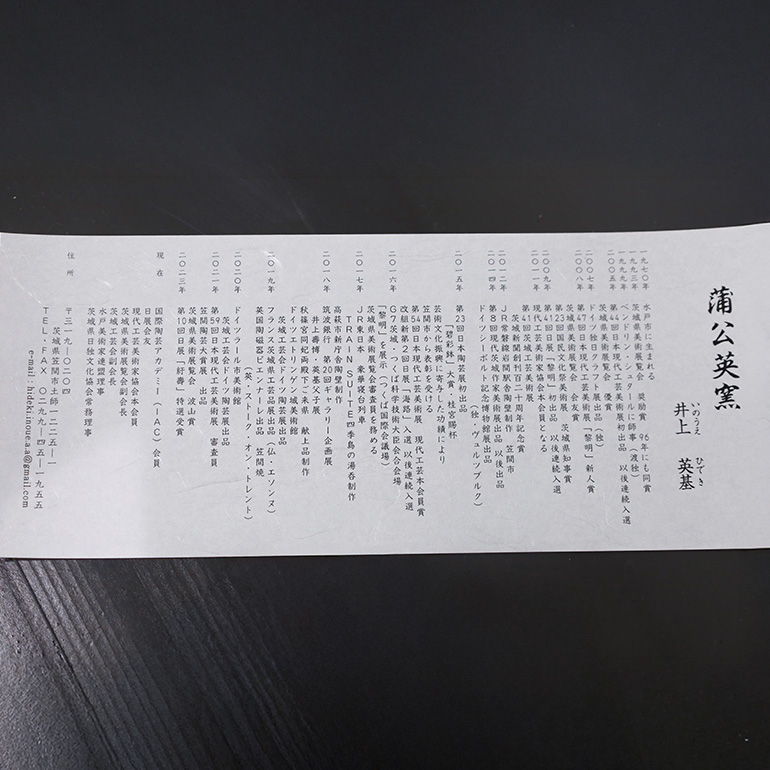 蒲公英窯
いのうえ ひでき
井上 英基
一九七〇年 水戸市に生まれる
一九九三年 茨城県美術展覧会 奨励賞 96年にも同賞
一九九九年 ベンドリン・シュタールに師事（渡独）
二〇〇五年 第44回日本現代工芸美術展初出品 以後連続入選
茨城県美術展覧会 優賞
二〇〇七年 ドイツ独日クラフト展出品（独）
第47回日本現代工芸美術展「黎明」新人賞
二〇〇八年 茨城県美術展覧会 会友賞
第23回国民文化祭美術展 茨城県知事賞
二〇〇九年 第41回日展「黎明」初出品 以後連続入選
現代工芸美術家協会本会員となる
第41回茨城現代工芸美術展
茨城新聞創刊百二十周年記念賞
二〇一二年 JR常磐線岩間駅舎陶壁制作 笠間市
二〇一四年 第8回現代茨城作家美術展出品 以後出品
ドイツシーボルト記念博物館展出品
（独・ヴュルツブルク）
二〇一五年 第23回日本陶芸展初出品
「碧彩鉢」大賞・桂宮賜杯
芸術文化振興に寄与した功績により
笠間市から表彰を受ける
第54回日本現代工芸美術展 現代工芸本会員賞
改組新第2回日展「海路」入選 以後連続入選
二〇一六年 G7茨城・つくば科学技術大臣会合会場
「黎明」を展示（つくば国際会議場）
茨城県美術展覧会審査員を務める
二〇一七年 JR東日本 豪華寝台列車
TRAIN SUITE四季島の湯呑制作
高萩市新庁舎陶壁制作
二〇一八年 筑波銀行 第20回ギャラリー企画展
井上壽博・英基父子展
秋篠宮同妃両殿下ご来県 献上品制作
ドイツエトリンゲン城美術館
茨城工芸会ドイツ陶芸展出品
二〇一九年 フランス茨城県工芸品展出品（仏・エソンヌ）
英国陶磁器ビエンナーレ出品 笠間焼
（英・ストーク・オン・トレント）
二〇二〇年 ドイツラール市美術館
茨城工芸会ドイツ陶芸展出品
二〇二一年 第59回日本現代工芸美術展 審査員
笠間陶芸大賞展 出品
茨城県美術展覧会 波山賞
二〇二三年 第10回日展「紆壽」特選受賞
現在 国際陶芸アカデミー（IAC）会員
日展会友
現代工芸美術家協会本会員
茨城県美術展覧会会員
茨城工芸会副会長
水戸美術家連盟理事
茨城県日独文化協会常務理事
住所 〒三一九―〇二〇四
茨城県笠間市土師一二二五―一
TEL・FAX 〇二九九―四五―一九五五
e-mail：hideki.inoue.a.a@gmail.com